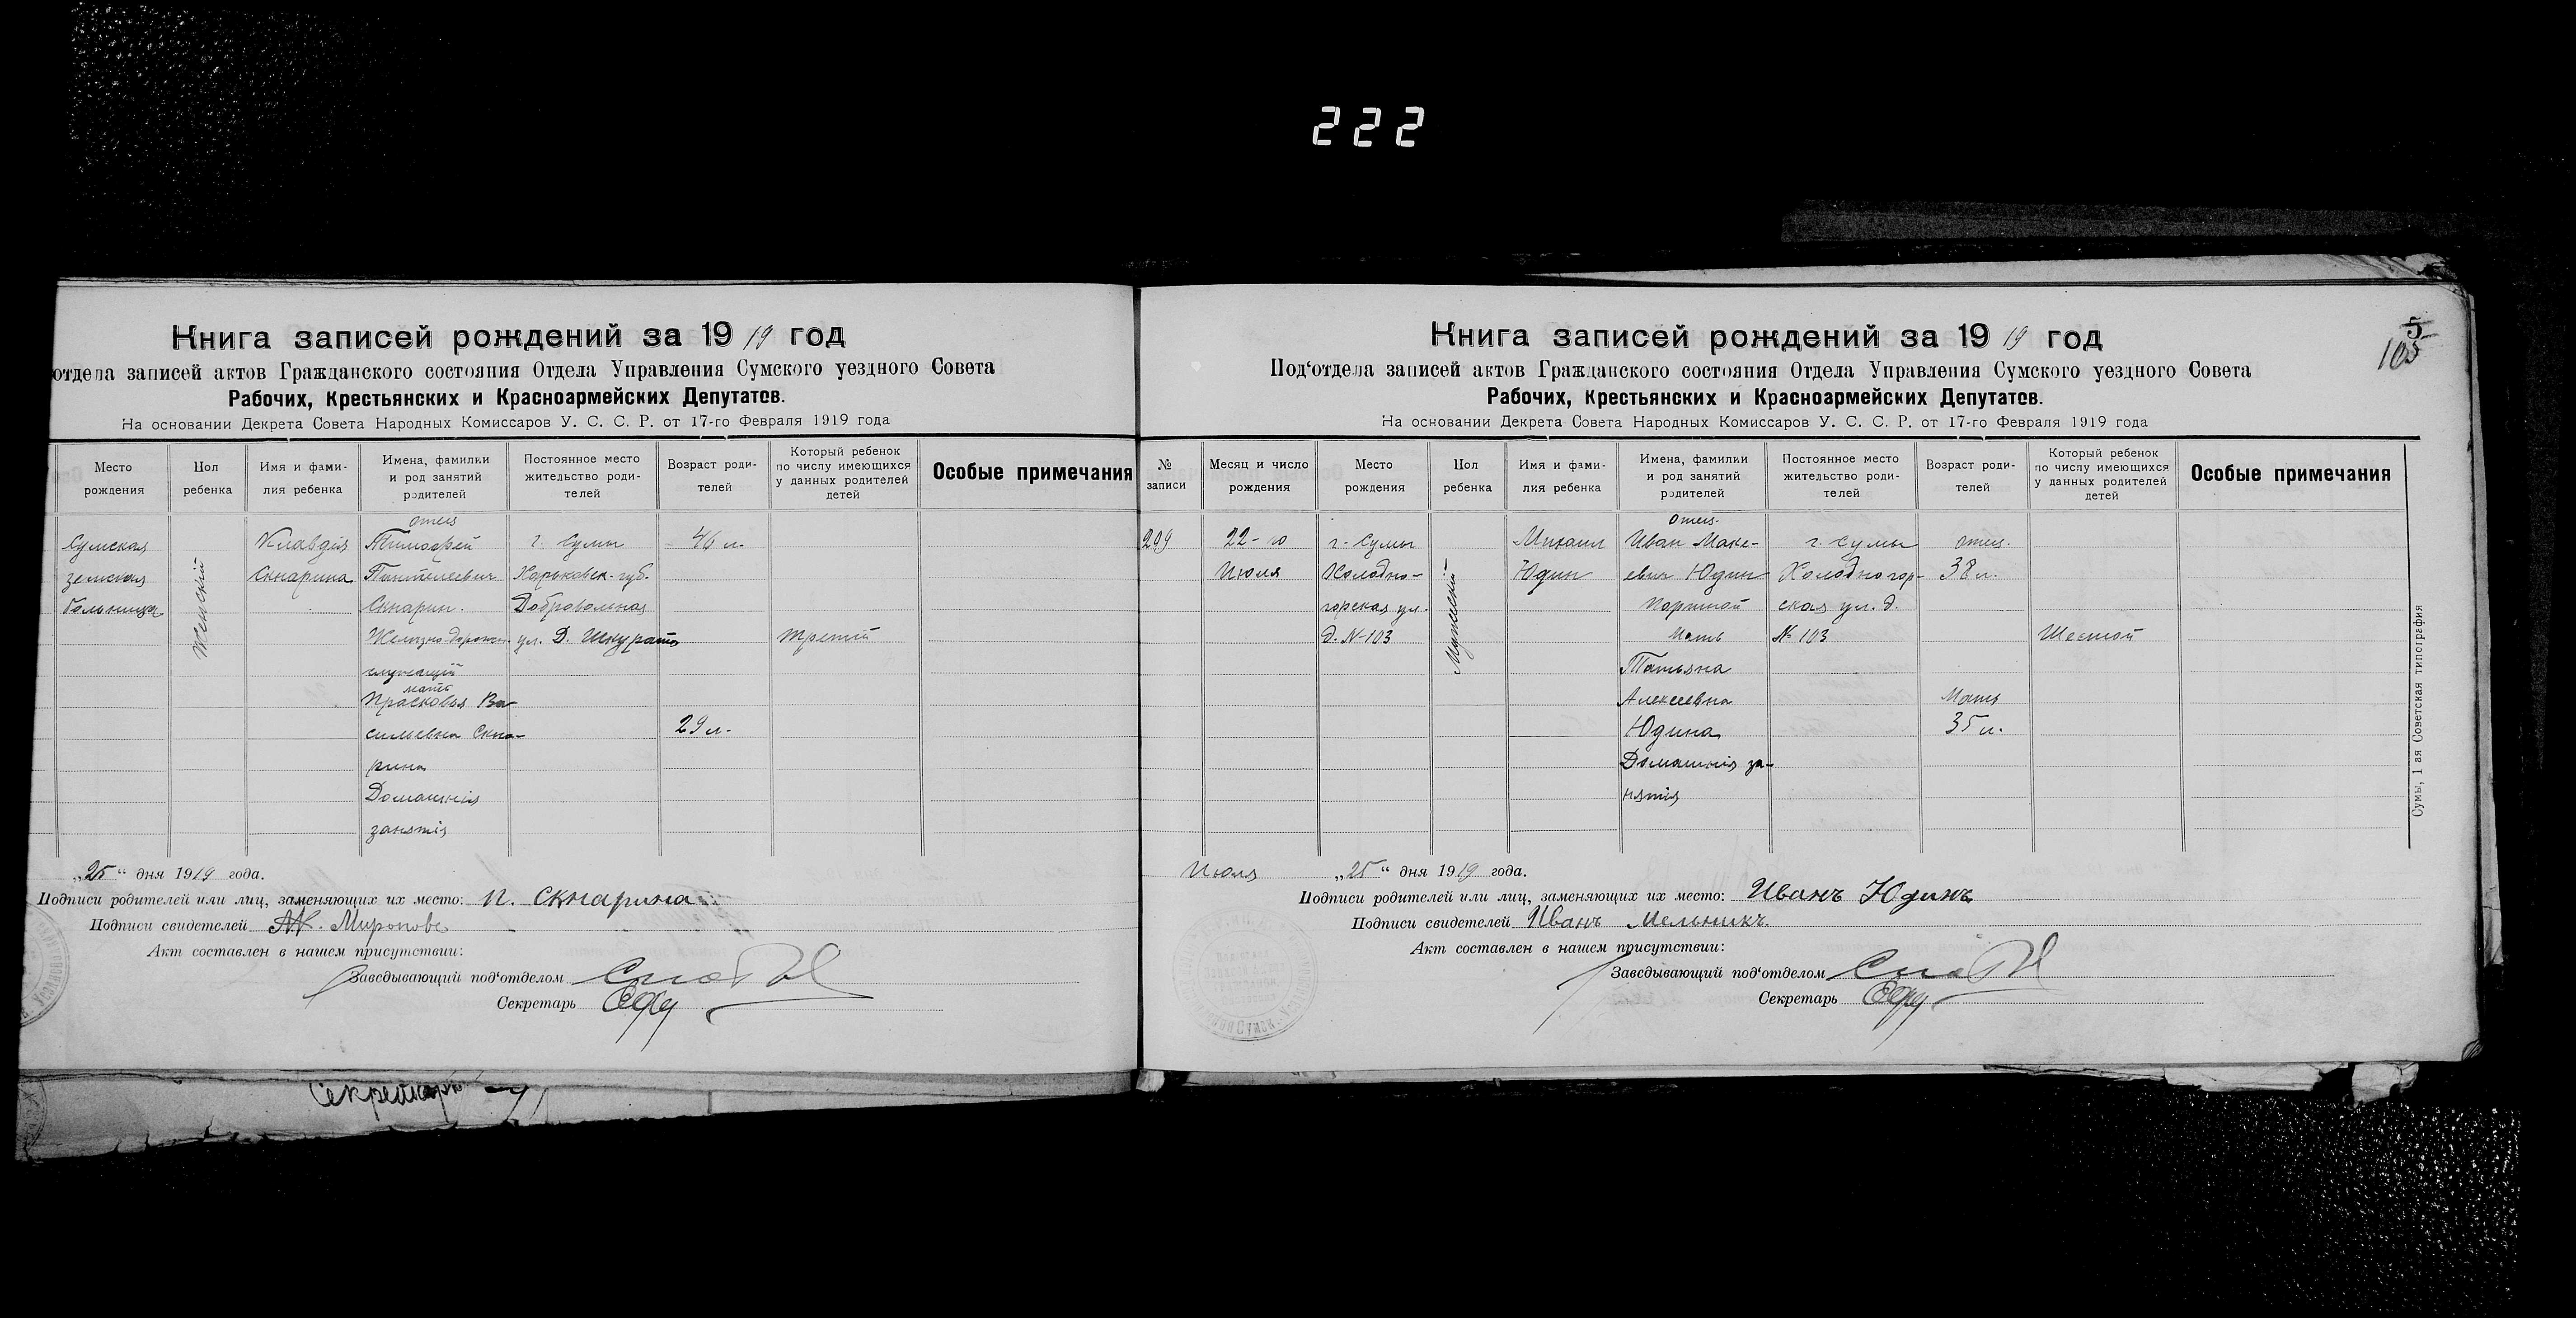 222
Книга записей рождений за 19 19 год
отдела записей актов Гражданского состояния Отдела Управления Сумского уездного Совета
Рабочих, Крестьянских и Красноармейских Депутатов.
На основании Декрета Совета Народных Комиссаров У. С. С. Р. от 17-го Февраля 1919 года
Место рождения
Пол ребенка
Имя и фамилия ребенка
Имена, фамилии и род занятий родителей
Постоянное место жительство родителей
Возраст родителей
Который ребенок по числу имеющихся у данных родителей детей
Особые примечания
Сумская
земская
больница
Женский
Клавдія
Скнарина
отец
Тимофей
Пантелеевич
Скнарин.
Железно-дорожн.
служащій
мать
Прасковья Ва-
сильевна Скна-
рина
Домашнія
занятія
г. Сумы
Харьковск. губ.
Добровольная
ул. Д.
46 л.
29 л.
третий
„25“ дня 1919 года.
Подписи родителей или лиц, заменяющих их место: П. Скнарина
Подписи свидетелей
Акт составлен в нашем присутствии:
Заведывающий под‘отделом
Секретарь
Секретарь
Книга записей рождений за 19 19 год
5
Под‘отдела записей актов Гражданского состояния Отдела Управления Сумского уездного Совета
Рабочих, Крестьянских и Красноармейских Депутатов.
На основании Декрета Совета Народных Комиссаров У. С. С. Р. от 17-го Февраля 1919 года
№ записи
Месяц и число рождения
Место рождения
Пол ребенка
Имя и фамилия ребенка
Имена, фамилии и род занятий родителей
Постоянное место жительство родителей
Возраст родителей
Который ребенок по числу имеющихся у данных родителей детей
Особые примечания
209
22-го
Июля
г. Сумы
Холодно-
горская ул.
д. № 103
Мужеский
Михаил
Юдин
отец.
Иван Маке-
евич Юдин
Портной
Мать
Татьяна
Алексеевна
Юдина
Домашнія за-
нятія
г. Сумы
Холодногор-
ская ул. д.
№ 103
отец.
38 л.
Мать
35 л.
Шестой
Июля „25“ дня 1919 года.
Подписи родителей или лиц, заменяющих их место: Иванъ Юдинъ
Подписи свидетелей Иванъ Мельникъ.
Акт составлен в нашем присутствии:
Заведывающий под‘отделом
Секретарь
Сумы, 1 ая Советская типография